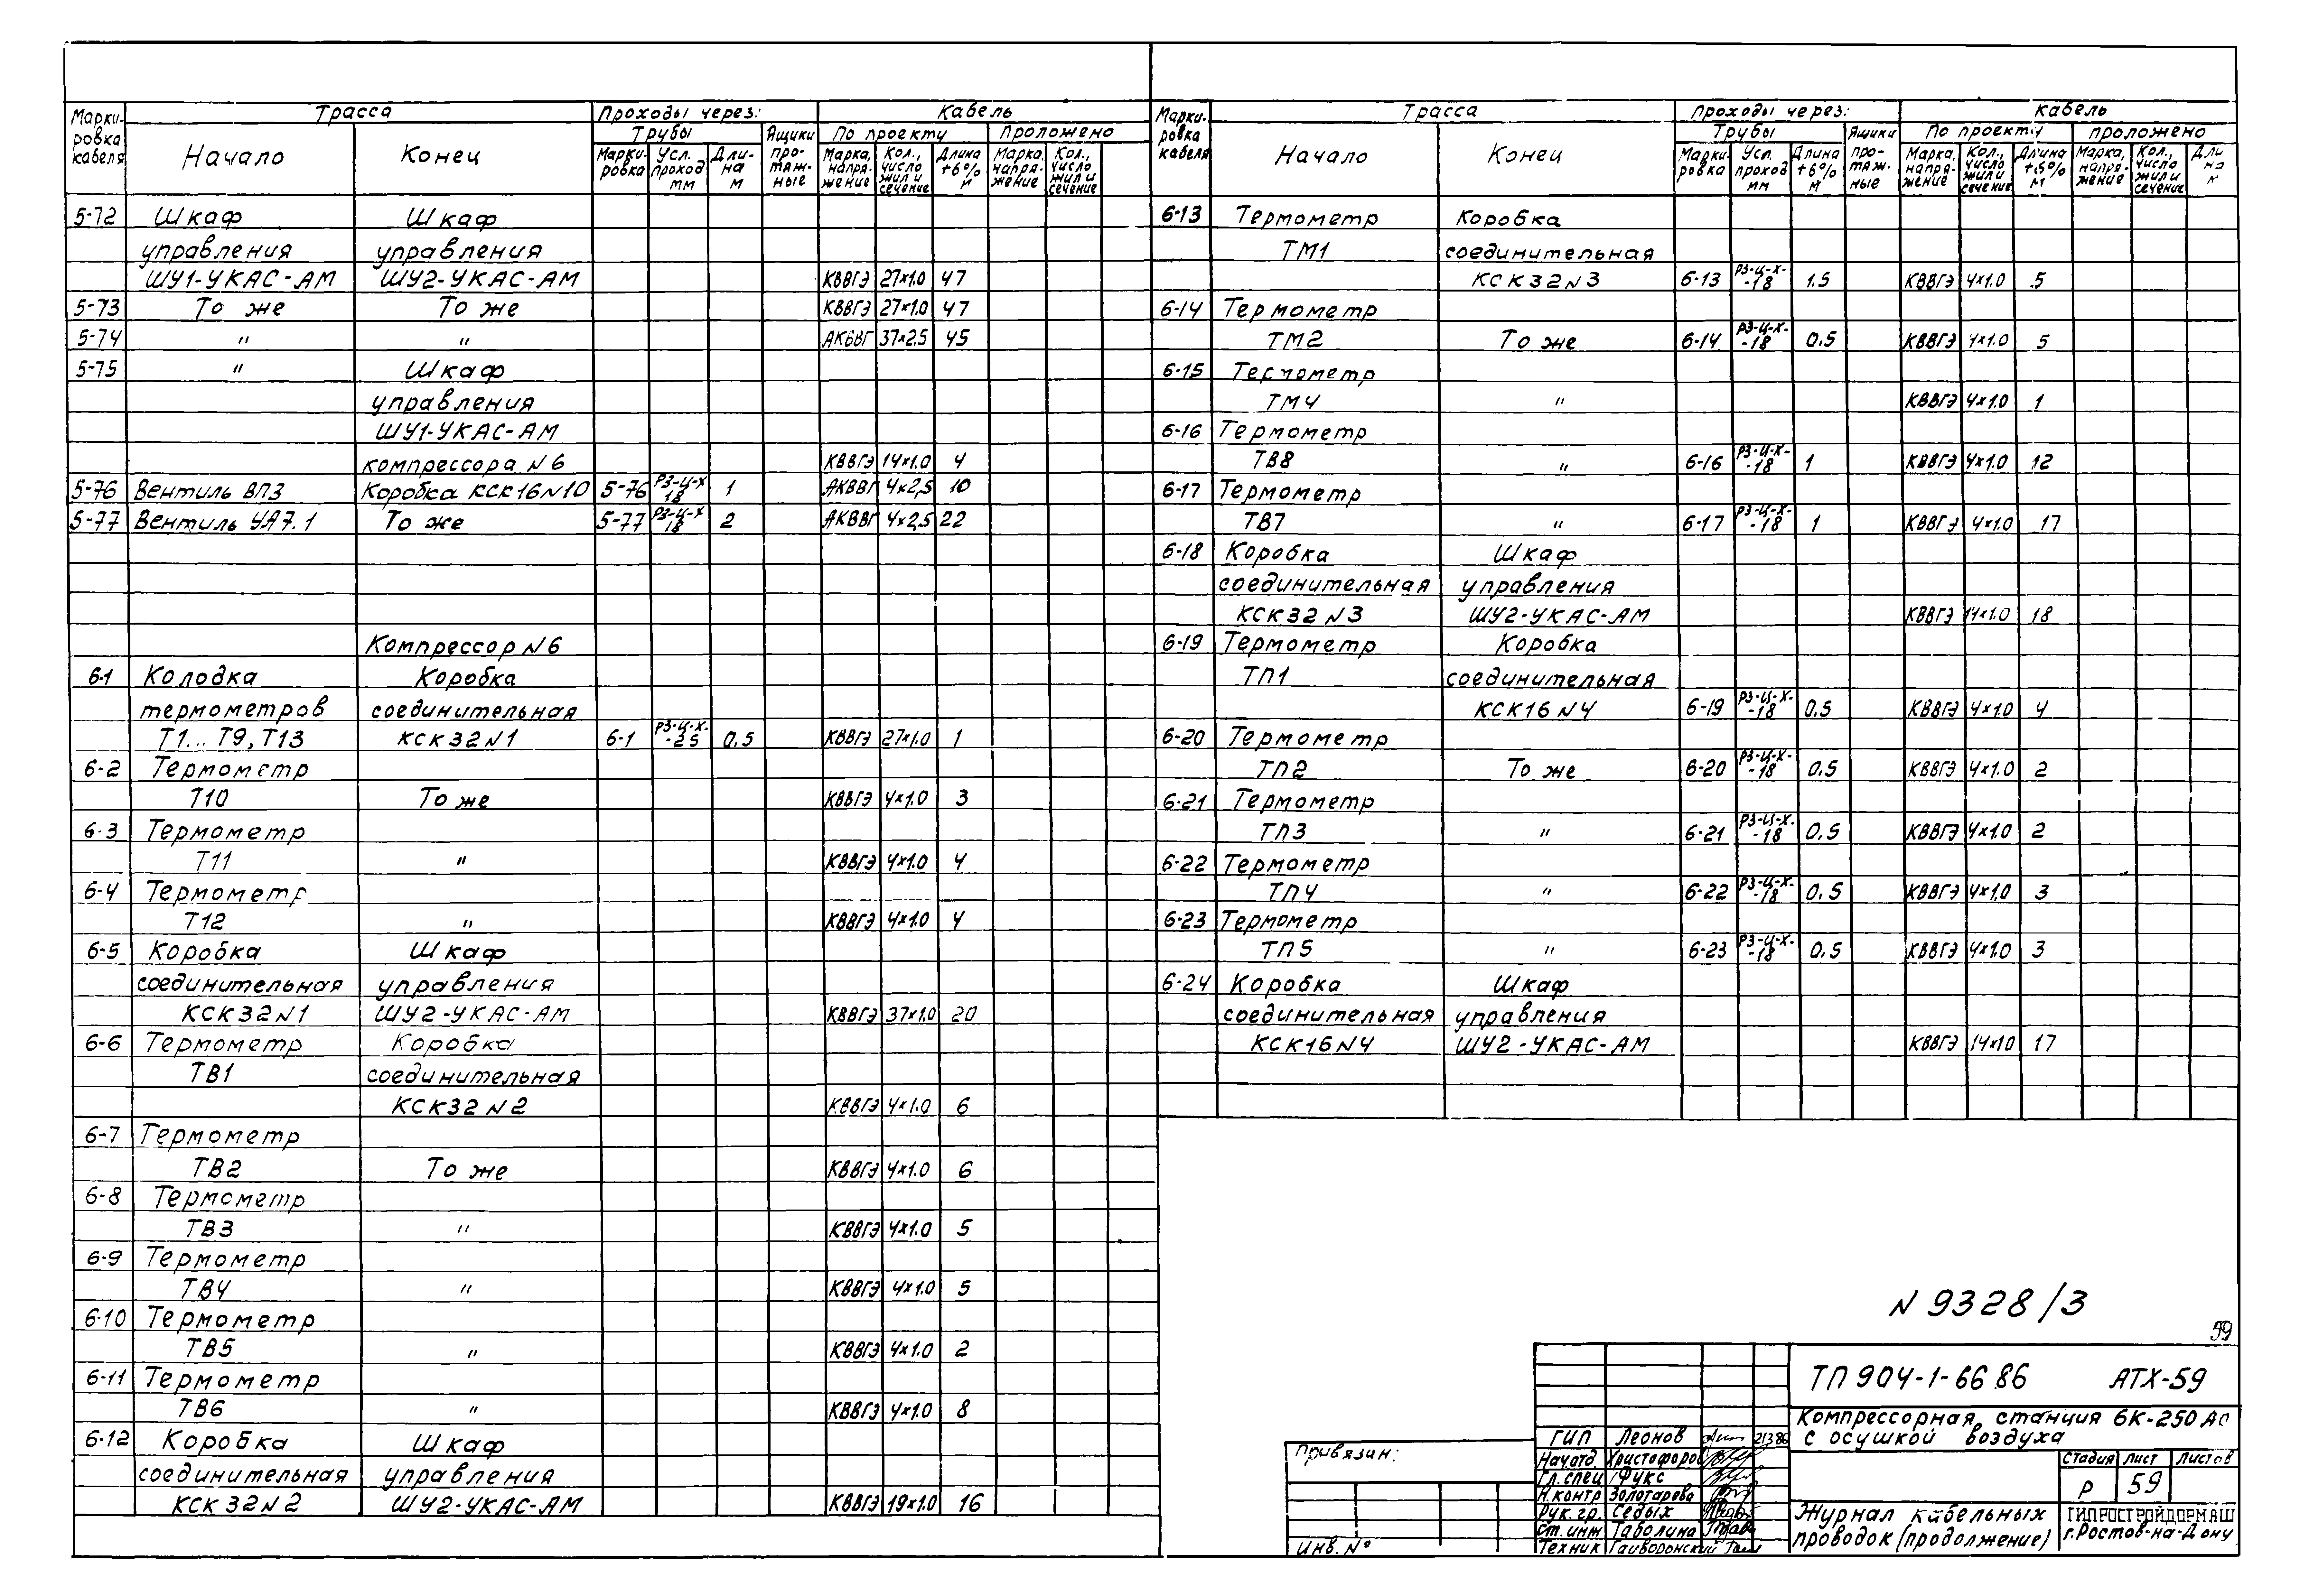 Марки-ровка кабеля | Трасса | Проходы через: | Кабель
Начало | Конец | Трубы | Ящики про-таж-ные | По проекту | Проложено
Марки-ровка | Усл. проход мм | Дли-на м | Марка, напря-жение | Кол., число жил и сечение | Длина +6% м | Марка, напря-жение | Кол., число жил и сечение
5-72 Шкаф Шкаф
управления управления
ШУ1-УКАС-АМ ШУ2-УКАС-АМ КВВГЭ 27×1.0 47
5-73 То же То же КВВГЭ 27×1.0 47
5-74 " " АКВВГ 37×2,5 45
5-75 " Шкаф
управления
ШУ1-УКАС-АМ
компрессора N6 КВВГЭ 14×1.0 4
5-76 Вентиль ВПЗ Коробка КСК16N10 5-76 РЗ-Ц-Х 18 1 АКВВГ 4×2,5 10
5-77 Вентиль УА7.1 То же 5-77 РЗ-Ц-Х 18 2 АКВВГ 4×2,5 22
Компрессор N6
6-1 Колодка Коробка
термометров соединительная
Т1...Т9,Т13 КСК32N1 6-1 РЗ-Ц-Х-25 0,5 КВВГЭ 27×1.0 1
6-2 Термометр
Т10 То же КВВГЭ 4×1.0 3
6-3 Термометр
Т11 " КВВГЭ 4×1.0 4
6-4 Термометр
Т12 " КВВГЭ 4×1.0 4
6-5 Коробка Шкаф
соединительная управления
КСК32N1 ШУ2-УКАС-АМ КВВГЭ 37×1.0 20
6-6 Термометр Коробка
ТВ1 соединительная
КСК32N2 КВВГЭ 4×1.0 6
6-7 Термометр
ТВ2 То же КВВГЭ 4×1.0 6
6-8 Термометр
ТВ3 " КВВГЭ 4×1.0 5
6-9 Термометр
ТВ4 " КВВГЭ 4×1.0 5
6-10 Термометр
ТВ5 " КВВГЭ 4×1.0 2
6-11 Термометр
ТВ6 " КВВГЭ 4×1.0 8
6-12 Коробка Шкаф
соединительная управления
КСК32N2 ШУ2-УКАС-АМ КВВГЭ 19×1.0 16
Марки-ровка кабеля | Трасса | Проходы через: | Кабель
Начало | Конец | Трубы | Ящики про-таж-ные | По проекту | Проложено
Марки-ровка | Усл. проход мм | Длина +6% м | Марка, напря-жение | Кол., число жил и сечение | Длина +6% м | Марка, напря-жение | Кол., число жил и сечение | Дли
6-13 Термометр Коробка
ТМ1 соединительная
КСК32N3 6-13 РЗ-Ц-Х-18 1.5 КВВГЭ 4×1.0 5
6-14 Термометр
ТМ2 То же 6-14 РЗ-Ц-Х-18 0.5 КВВГЭ 4×1.0 5
6-15 Термометр
ТМ4 " КВВГЭ 4×1.0 1
6-16 Термометр
ТВ8 " 6-16 РЗ-Ц-Х-18 1 КВВГЭ 4×1.0 12
6-17 Термометр
ТВ7 " 6-17 РЗ-Ц-Х-18 1 КВВГЭ 4×1.0 17
6-18 Коробка Шкаф
соединительная управления
КСК32N3 ШУ2-УКАС-АМ КВВГЭ 14×1.0 18
6-19 Термометр Коробка
ТП1 соединительная
КСК16N4 6-19 РЗ-Ц-Х-18 0.5 КВВГЭ 4×1.0 4
6-20 Термометр
ТП2 То же 6-20 РЗ-Ц-Х-18 0.5 КВВГЭ 4×1.0 2
6-21 Термометр
ТП3 " 6-21 РЗ-Ц-Х-18 0.5 КВВГЭ 4×1.0 2
6-22 Термометр
ТП4 " 6-22 РЗ-Ц-Х-18 0.5 КВВГЭ 4×1,0 3
6-23 Термометр
ТП5 " 6-23 РЗ-Ц-Х-18 0,5 КВВГЭ 4×1.0 3
6-24 Коробка Шкаф
соединительная управления
КСК16N4 ШУ2-УКАС-АМ КВВГЭ 14×1.0 17
N 9328/3
59
ТП 904-1-66.86 АТХ-59
Компрессорная станция 6К-250 АО
с осушкой воздуха
Привязан:
Инв. №
ГИП Леонов 21386
Нач.отд. Христофоров
Гл.спец Фукс
Н.контр Золотарева
Рук.гр. Седых
Ст.инж Таболина
Техник Гайворонский
Стадия Лист Листов
Р 59
Журнал кабельных
проводок (продолжение)
ГИПРОСТРОЙДОРМАШ
г.Ростов-на-Дону